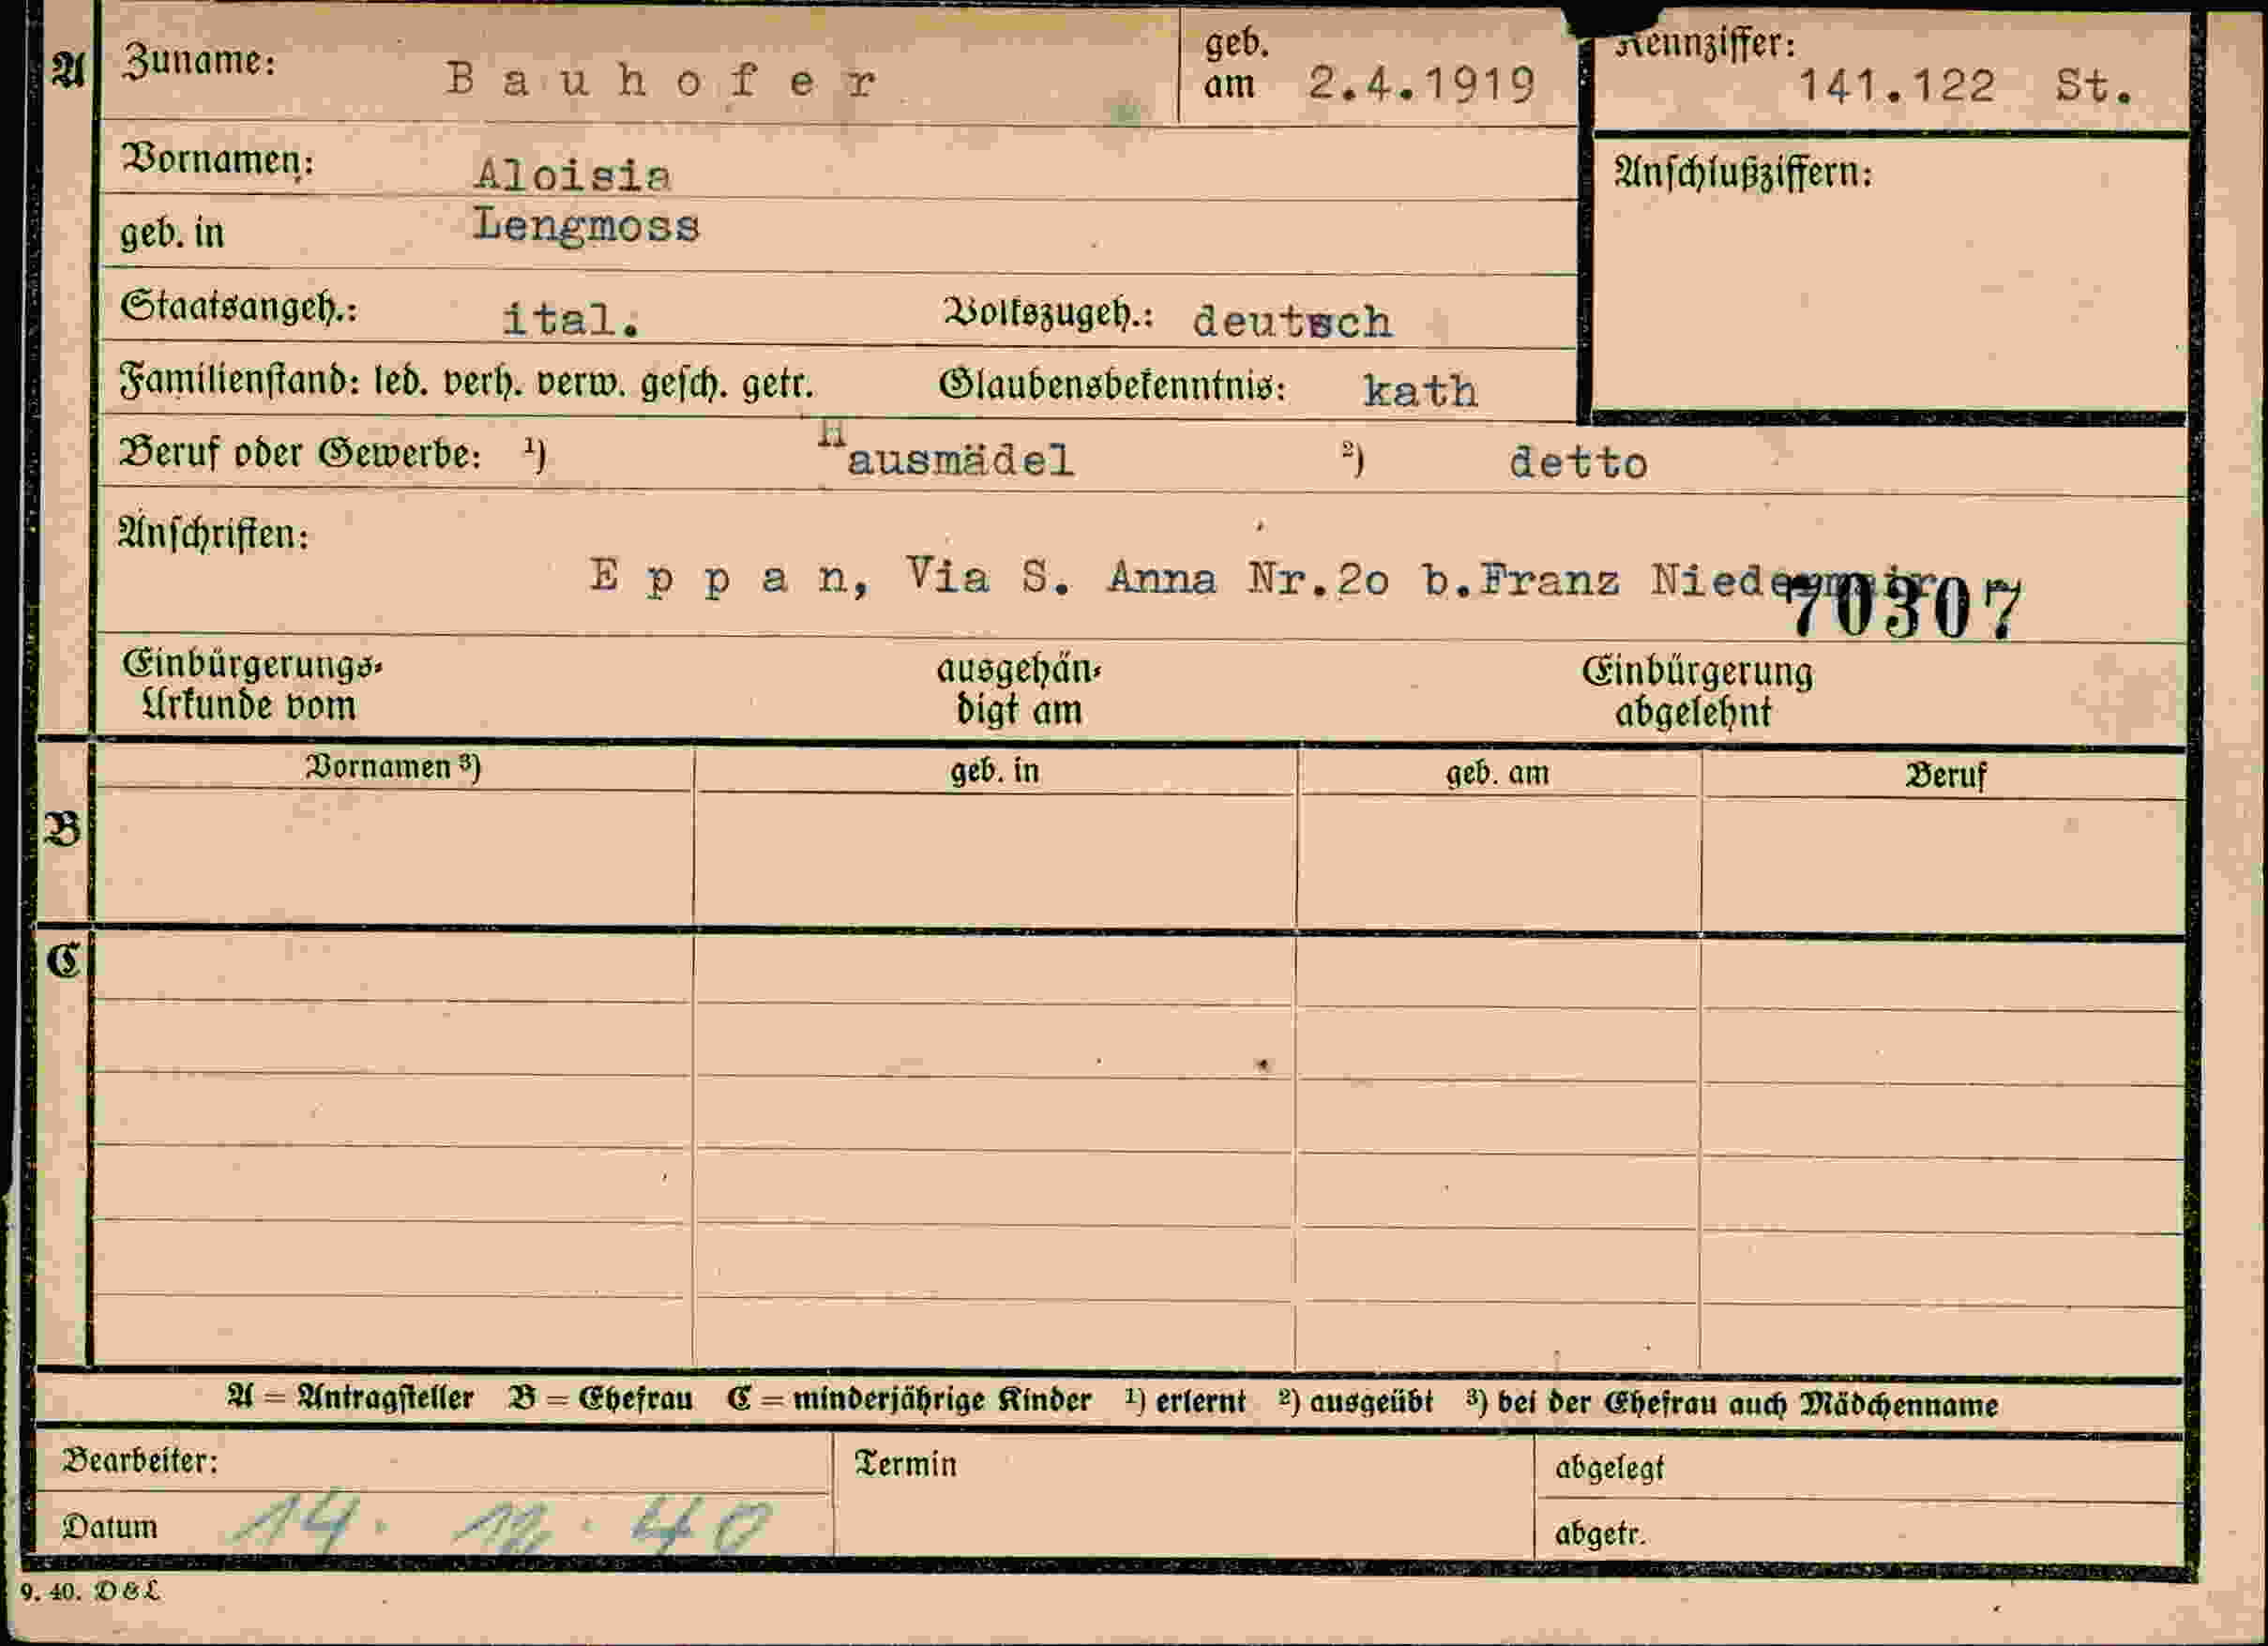 A Zuname: B a u h o f e r geb. am 2.4.1919 Kennziffer: 141.122 St.
Vornamen: Aloisia Anschlußziffern:
geb. in Lengmoss
Staatsangeh.: ital. Volkszugeh.: deutsch
Familienstand: led. verh. verw. gesch. getr. Glaubensbekenntnis: kath
Beruf oder Gewerbe: ¹) Hausmädel ²) detto
Anschriften:
E p p a n, Via S. Anna Nr.2o b.Franz Niedermair
70307
Einbürgerungs- ausgehän- Einbürgerung
Urkunde vom digt am abgelehnt
Vornamen ³) geb. in geb. am Beruf
B
C
A = Antragsteller B = Ehefrau C = minderjährige Kinder ¹) erlernt ²) ausgeübt ³) bei der Ehefrau auch Mädchenname
Bearbeiter: Termin abgelegt
Datum 14. 12. 40 abgetr.
9. 40. D&L